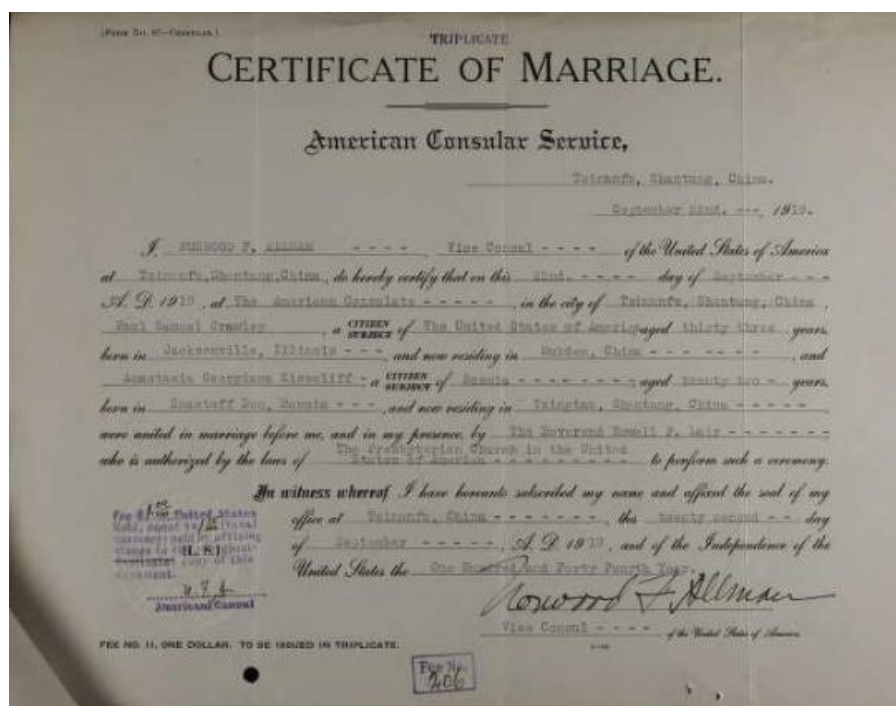 (Form No. 87—Consular.)
TRIPLICATE
CERTIFICATE OF MARRIAGE.
American Consular Service,
Tsinanfu, Shantung, China.
September 22nd. ---, 1919.
I, NORWOOD F. ALLMAN - - - - , Vice Consul - - - - of the United States of America
at Tsinanfu, Shantung, China, do hereby certify that on this 22nd. - - - - day of September - - -
A. D. 1919, at The American Consulate - - - - - , in the city of Tsinanfu, Shantung, China,
Paul Samuel Crawley , a CITIZEN SUBJECT of The United States of America aged thirty three years,
born in Jacksonville, Illinois - - - , and now residing in Mukden, China - - - - - - - , and
Anastasia Georgievna - a CITIZEN SUBJECT of Russia - - - - - - - -, aged twenty two - years,
born in Don, Russia - - - , and now residing in Tsingtau, Shantung, China - - - - - -
were united in marriage before me, and in my presence, by The Reverend Howell P. Lair - - - - - - -
who is authorized by the laws of The Presbyterian Church in the United
States of America - - - - - - - - - to perform such a ceremony.
In witness whereof I have hereunto subscribed my name and affixed the seal of my
office at Tsinanfu, China - - - - - - - , this twenty second - - day
of September - - - - - , A. D. 1919, and of the Independence of the
United States the One Hundred and Forty Fourth Year.
Fee $1.00 United States
Gold, equal to local
currency by affixing
stamp to the
copy of this
document.
[L. S.]
N. F. A.
American Consul
Norwood F. Allman
Vice Consul - - - - of the United States of America
FEE NO. 11, ONE DOLLAR. TO BE ISSUED IN TRIPLICATE.
Fee No.
206